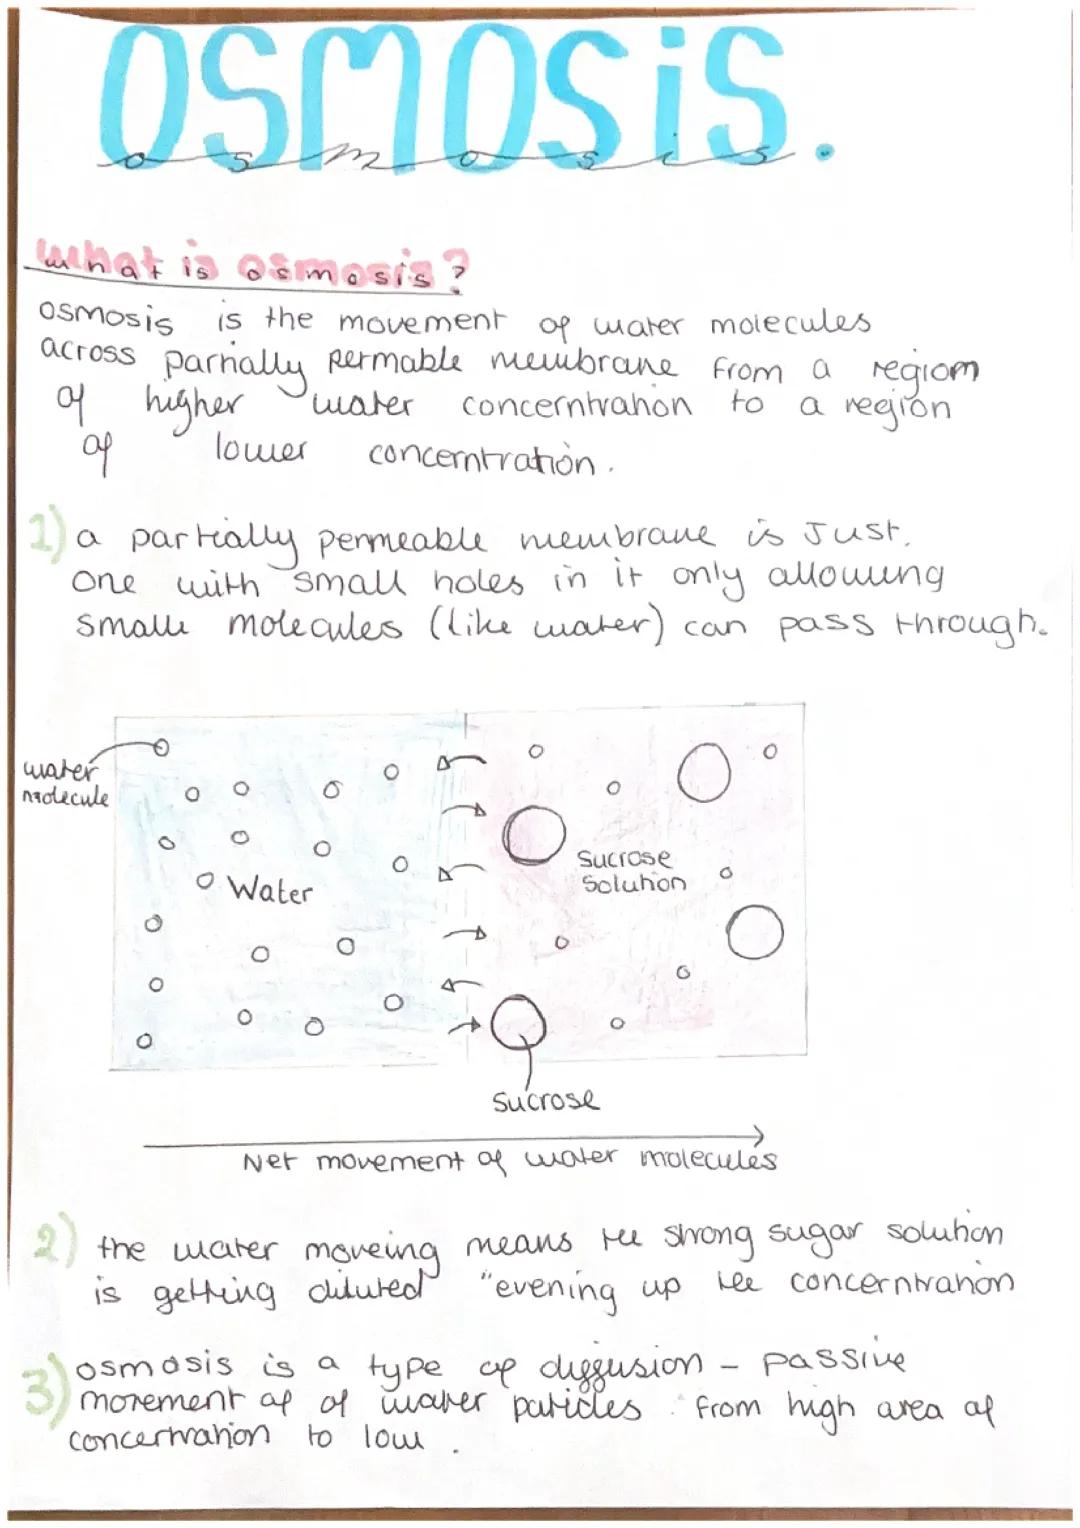 OSMOSiS.
osmosis
what is osmosis?
osmosis is the movement of water molecules
across partially permable membrane from a regiom
of higher water concerntration to a region
of lower concerntration.
1) a partially permeable membrane is Just.
one with small holes in it only allowing
small molecules (like water) can pass through.
water
molecule
Water
Sucrose
Solution
Sucrose
Net movement of water molecules
2) the water moveing means the strong sugar solution
is getting diluted "evening up the concerntration
3) osmosis is a type of diffusion - passive
movement of of water paticles from high area of
concertration to low.